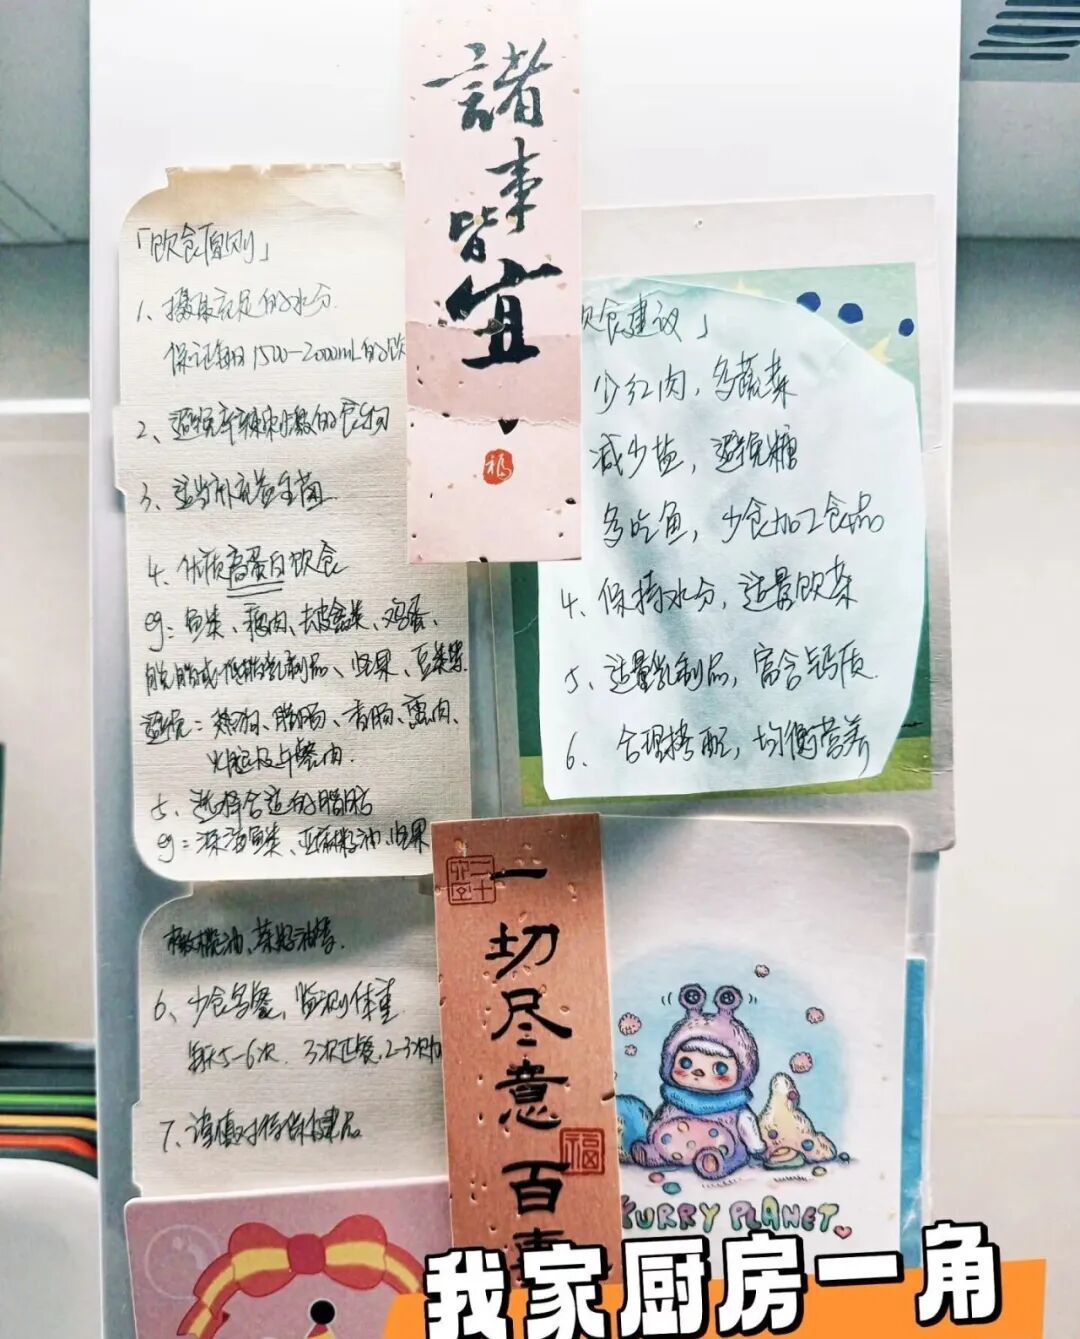 諸事皆宜
福
「饮食原则」
1、摄取充足的水分.
保证每日1500-2000mL的饮
2、避免辛辣刺激的食物
3、适当补充益生菌.
4、优质高蛋白饮食
eg：鱼类、鹅肉、去皮禽类、鸡蛋、
脱脂或低脂乳制品、坚果、豆类等.
避免：热狗、腊肠、香肠、熏肉、
火腿及午餐肉.
5、选择合适的脂肪
eg：深海鱼类、亚麻籽油、坚果
橄榄油、菜籽油等.
6、少食多餐，监测体重.
每天5-6次. 3次正餐，2-3次加
7、谨慎对待保健品
饮食建议」
少红肉，多蔬菜
减少盐，避免糖
多吃鱼，少食加工食品
4、保持水分，适量饮茶
5、适量乳制品，富含钙质.
6、合理搭配，均衡营养
一切尽意 百事
福
FURRY PLANET
我家厨房一角